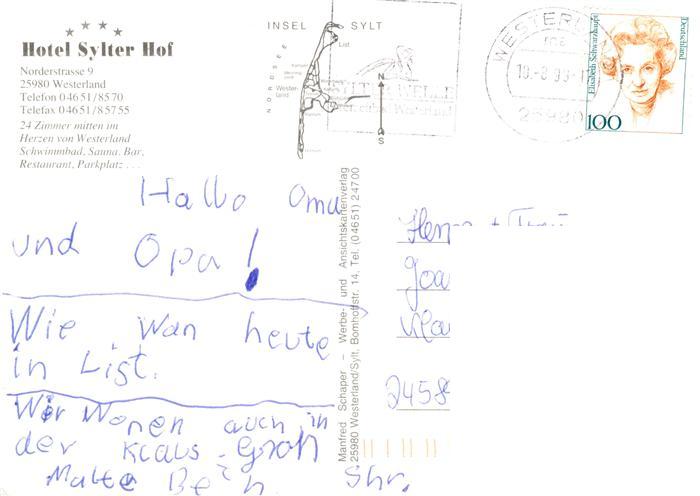 Hotel Sylter Hof
Norderstrasse 9
25980 Westerland
Telefon 04651/8570
Telefax 04651/85755
24 Zimmer mitten im
Herzen von Westerland
Schwimmbad, Sauna, Bar,
Restaurant, Parkplatz . . .
INSEL SYLT
NORDSEE
List
Westerland
N
S
WESTERL
25980
Elisabeth Schwarzhaupt
Deutschland
100
Hallo Oma
und Opa!
Wie wan heute
in List.
Wir Wonen auch in
der Klaus-Groh
Malte
Shr.
Manfred Schaper – Werbe- und Ansichtskartenverlag
25980 Westerland/Sylt, Bomhoffstr. 14, Tel. (04651) 24700
2458